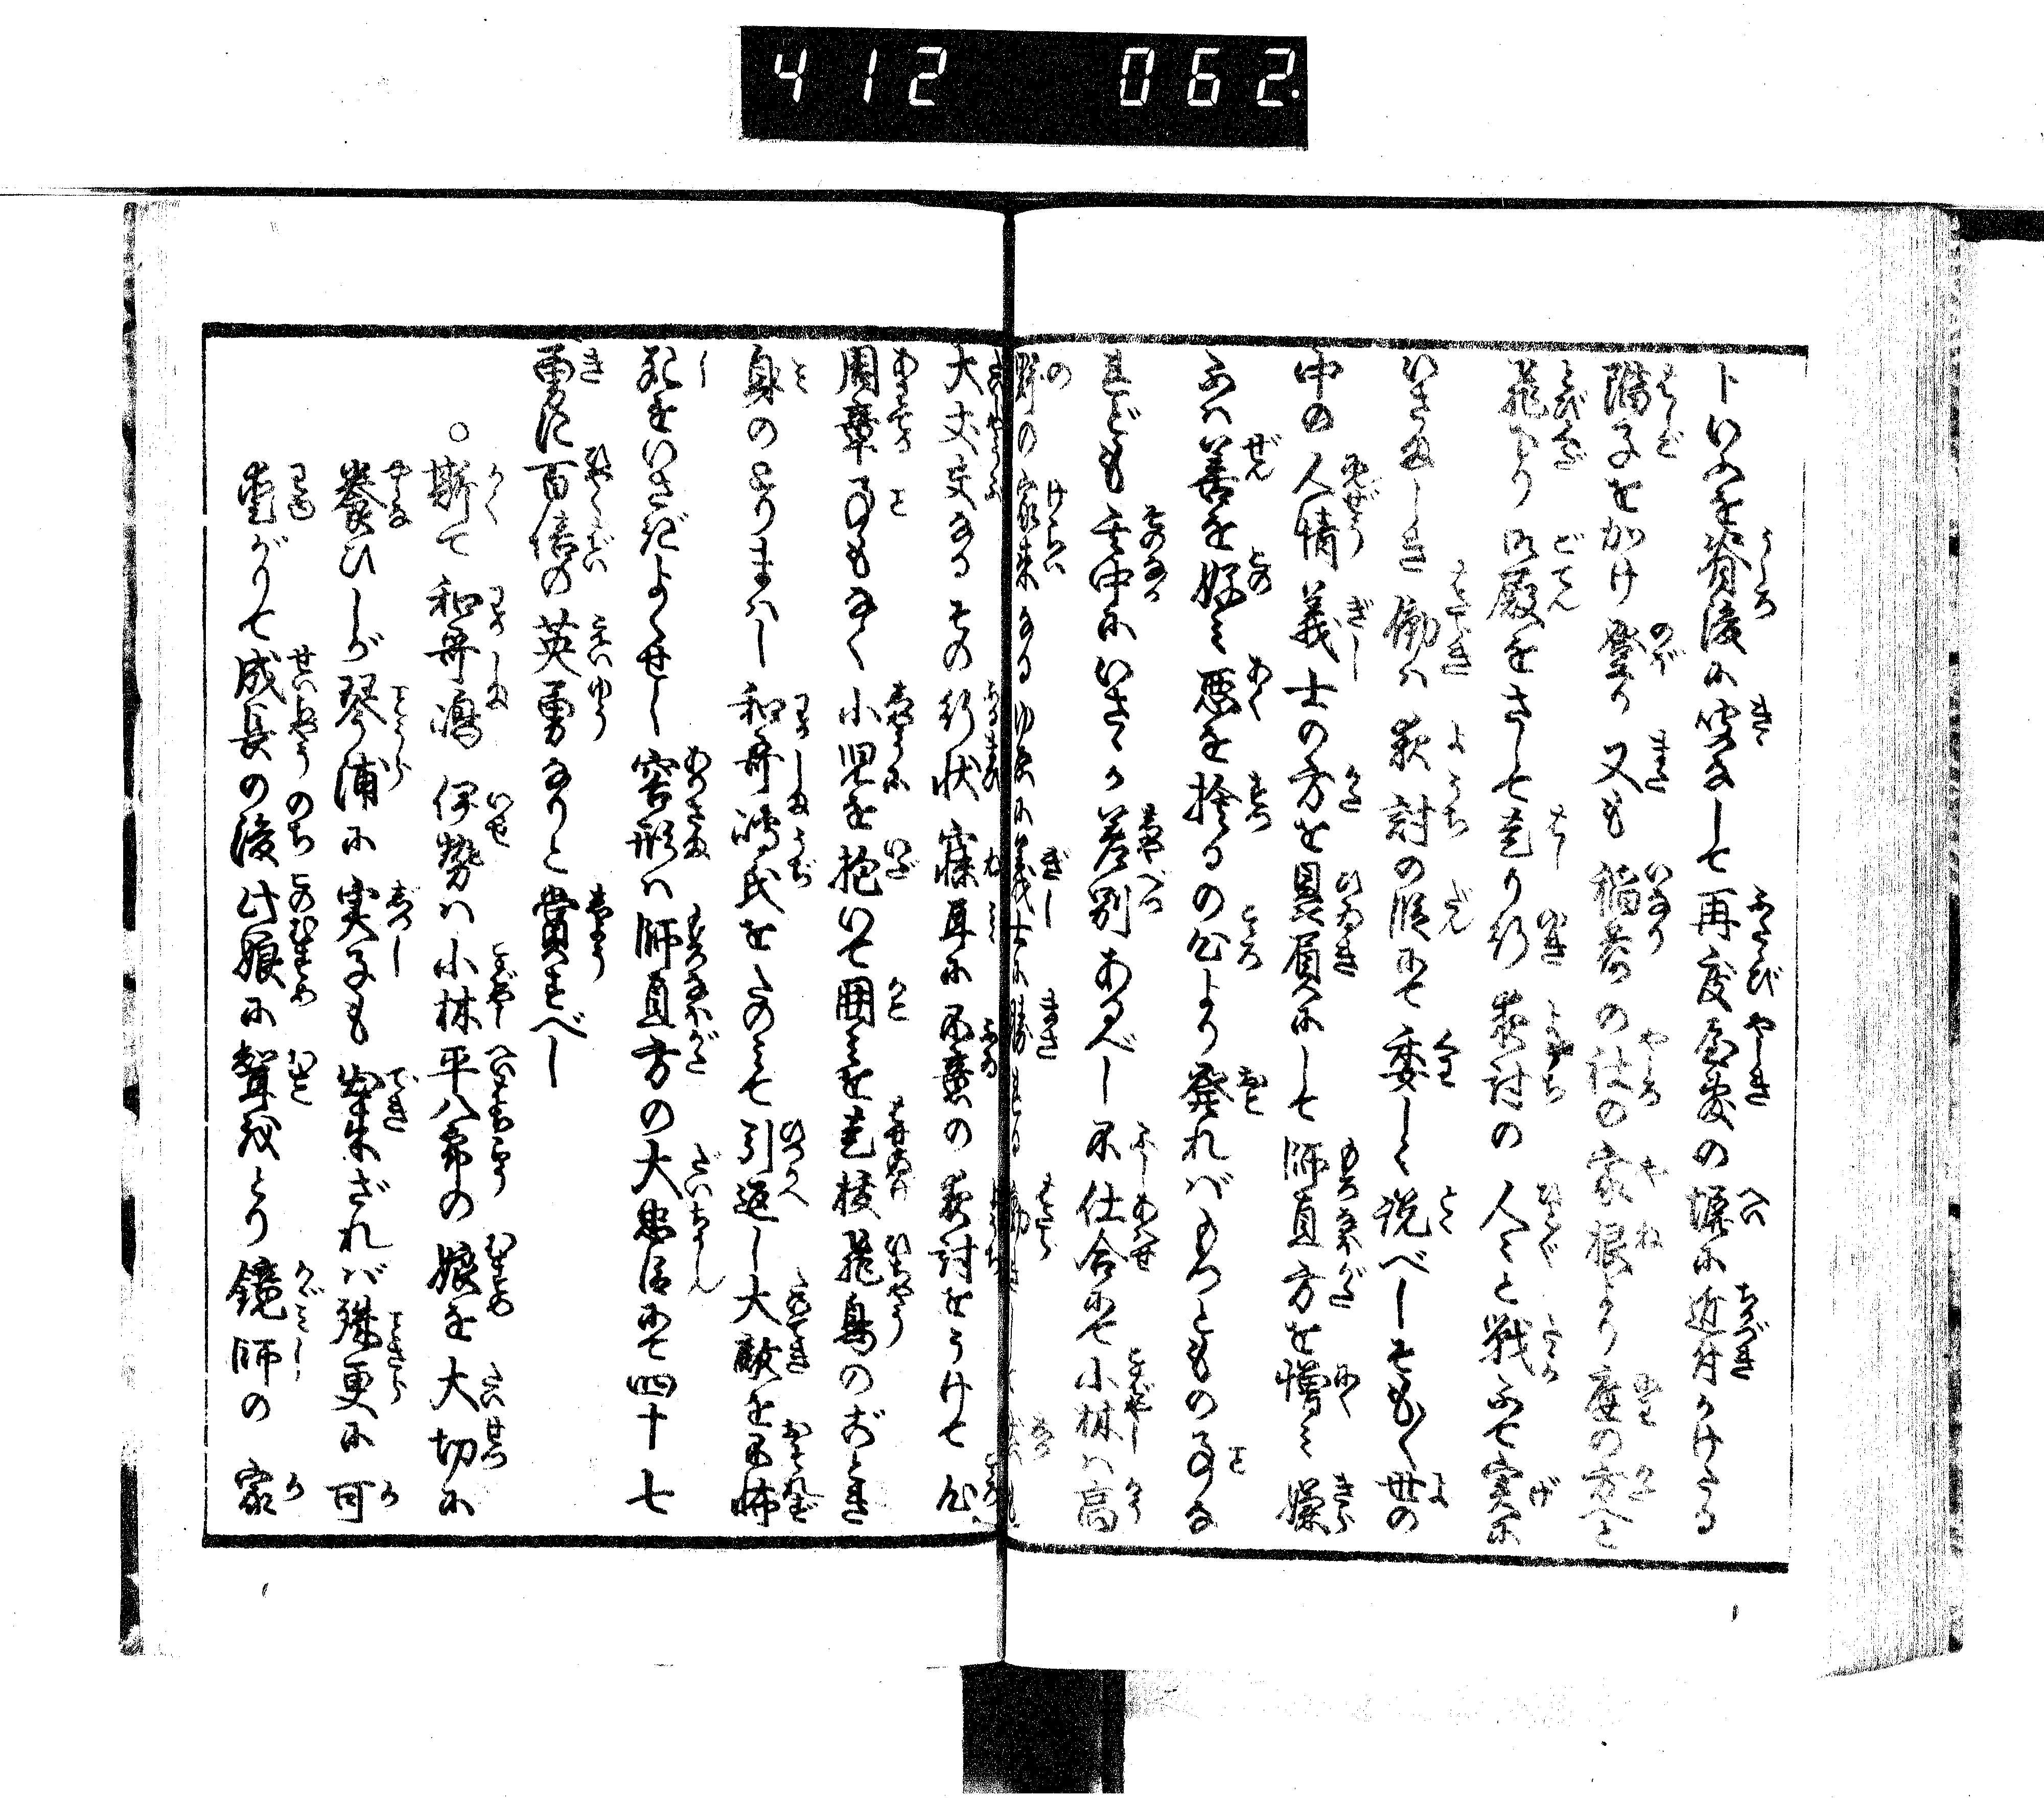 412 062.
トいふを背後に聞なして再度屋敷の塀に近付かけたる
階子をかけ登り又も稲荷の社の家根より庭の方へと
飛下り御殿をさして走り行夜討の人々と戦ふて実に
いさましき働は夜討の段にて委しく説べしそも〳〵世の
中の人情義士の方を贔屓にして師直方を憎み嫌
ふは善を好み悪を捨るの心より発ればもつともの事な
れども其中にいさゝか差別あるべし不仕合にて小林は高
野の家来なるゆゑに義士に勝
大丈夫なるその行状寐耳に不意の夜討をうけて心
周章る事もなく小児を抱いて囲みを走抜飛鳥のごとき
身のとりまはし和哥嶋氏をたのみて引返し大敵を不怖
死をいさぎよくせし容形は師直方の大忠臣にて四十七
勇に百倍の英勇なりと賞すべし
○斯て和哥嶋伊勢は小林平八郎の娘を大切に
養ひしが琴浦に実子も出来ざれば殊更に可
愛がりて成長の後此娘に聟をとり鏡師の家